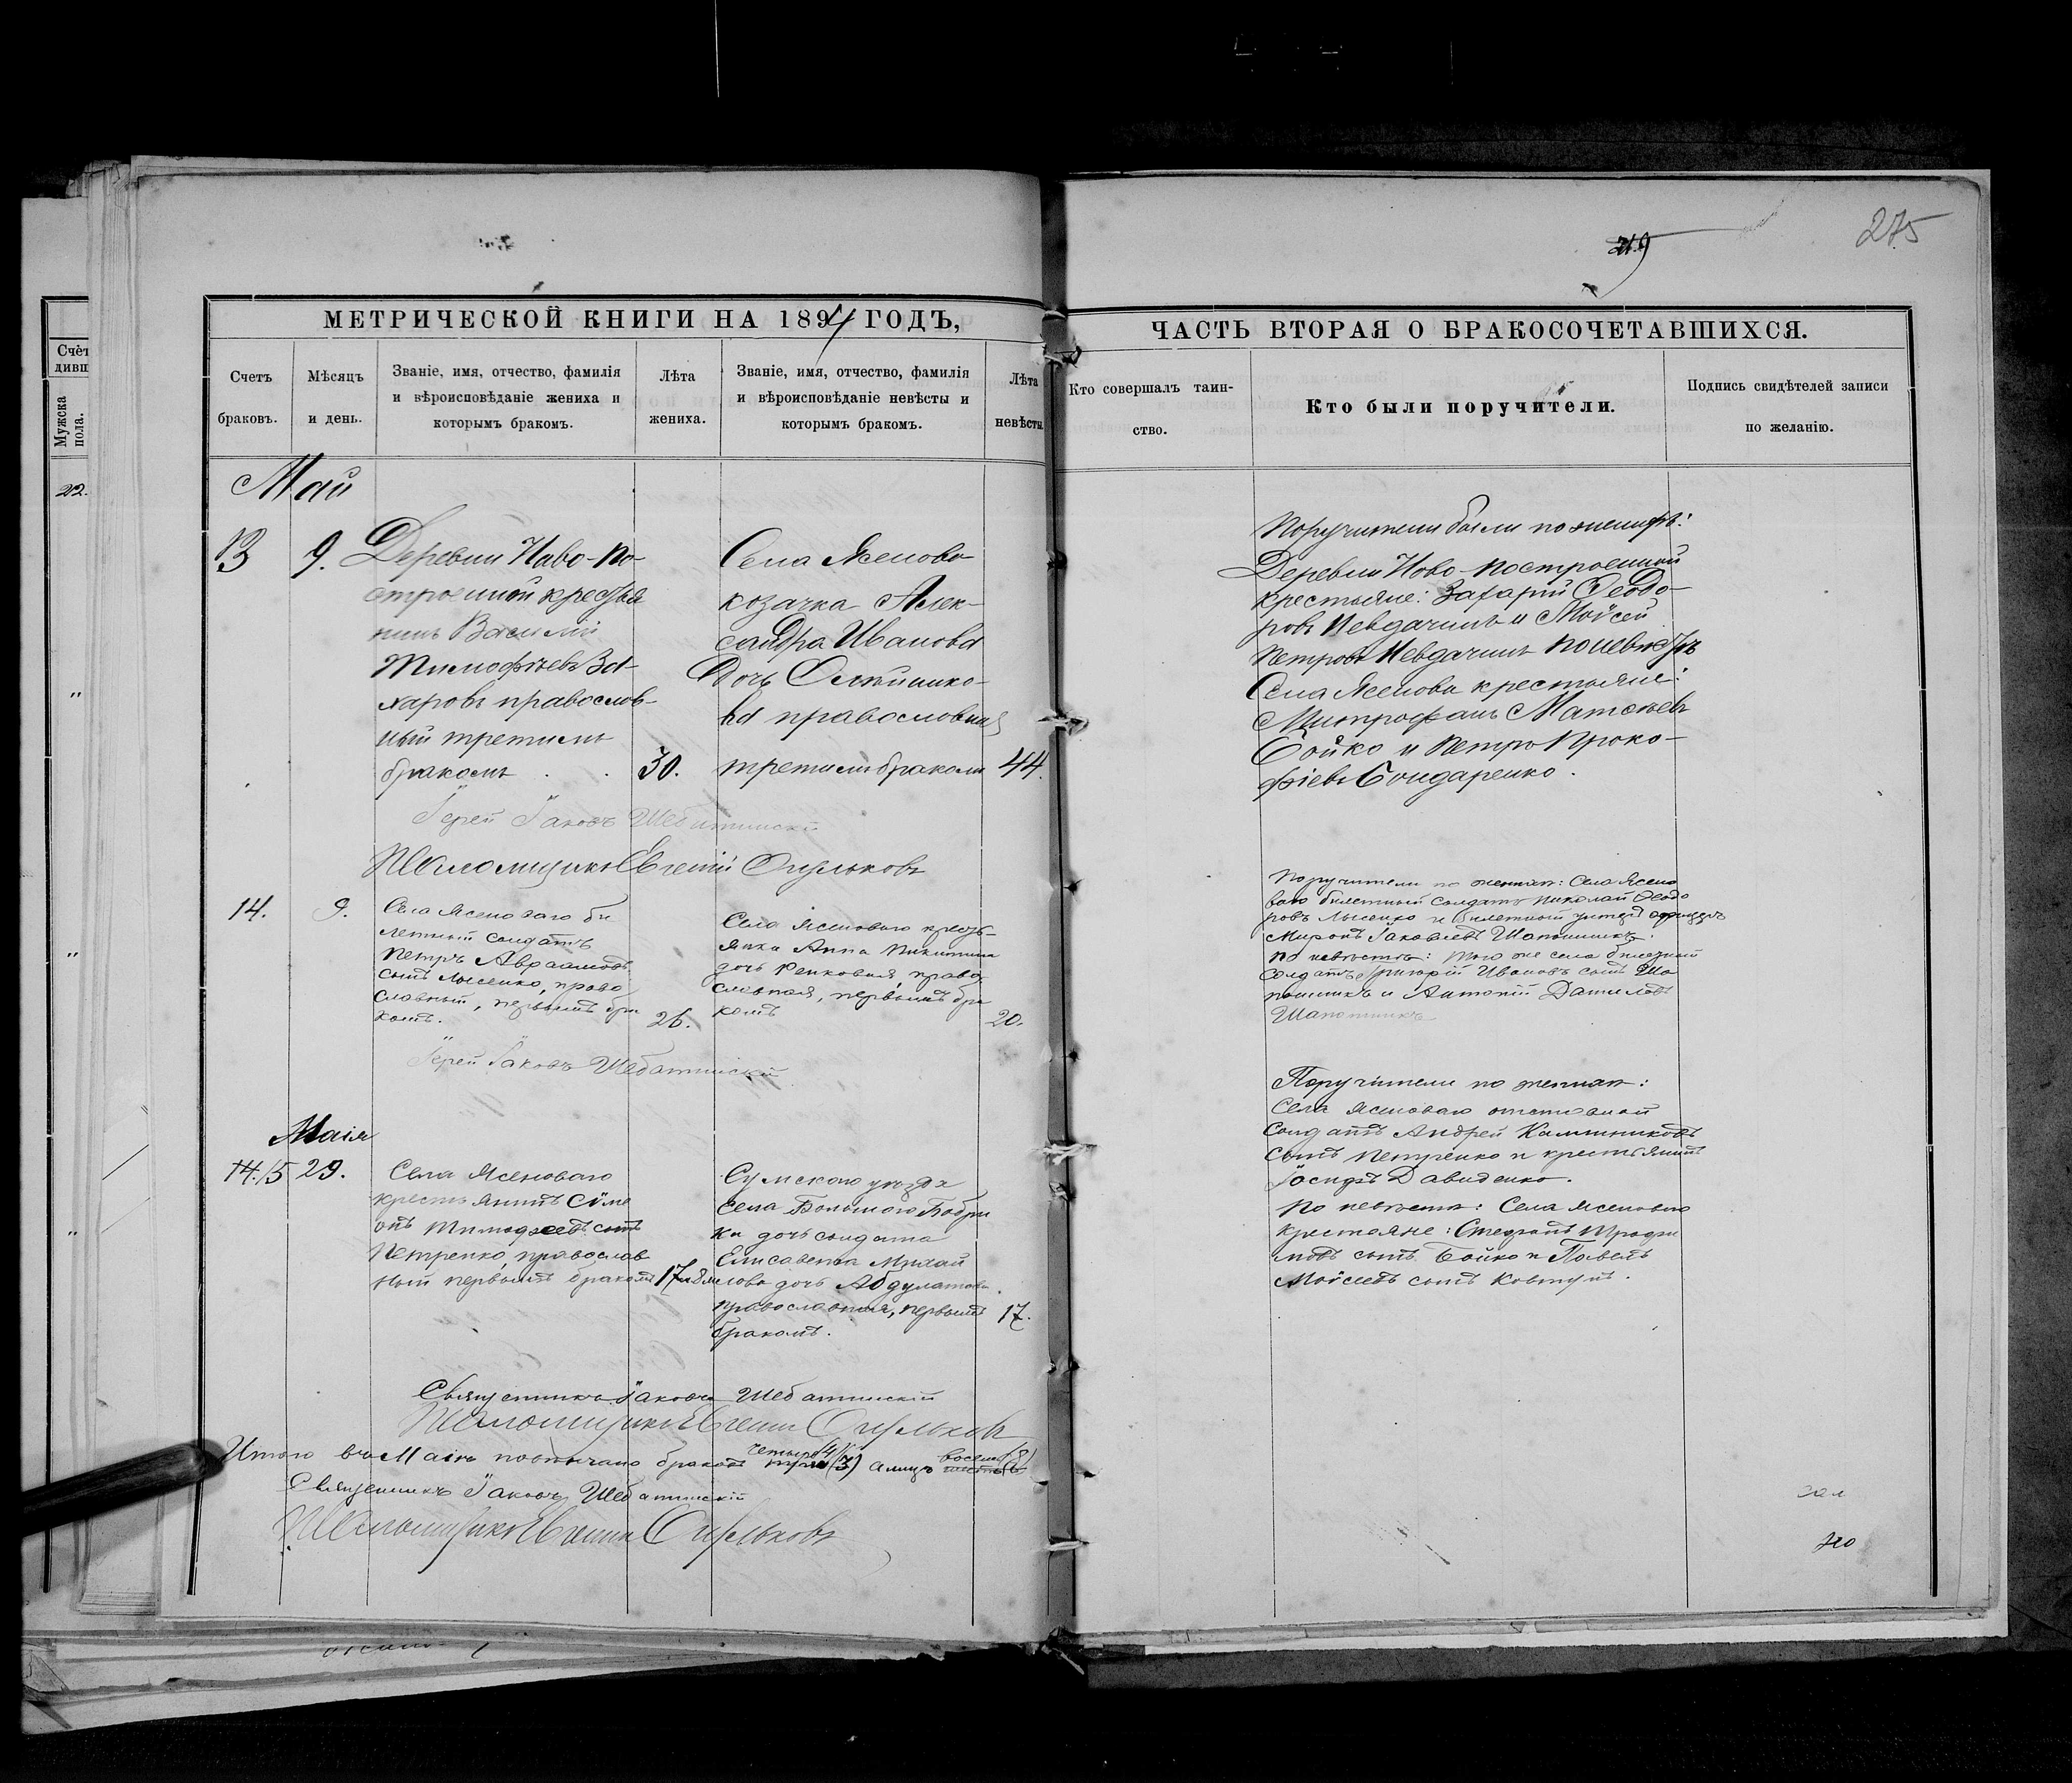 275
219
МЕТРИЧЕСКОЙ КНИГИ НА 1894 ГОДЪ,
ЧАСТЬ ВТОРАЯ О БРАКОСОЧЕТАВШИХСЯ.
Счетъ браковъ.
Мѣсяцъ и день.
Званіе, имя, отчество, фамилія
и вѣроисповѣданіе жениха и
которымъ бракомъ.
Лѣта жениха.
Званіе, имя, отчество, фамилія
и вѣроисповѣданіе невѣсты и
которымъ бракомъ.
Лѣта невѣсты
Кто совершалъ таин-
ство.
Кто были поручители.
Подпись свидѣтелей записи
по желанію.
Счет
дивш
Мужска
пола.
22.
Май
13
9.
Деревни Ново-по-
строенной крестья
нинъ Василій
Тимофѣевъ За-
харовъ православ-
ный третимъ
бракомъ
30.
Села Ясенова
козачка Алек-
сандра Иванова
дочь Олѣйнико-
ва православная
третимъ бракомъ
44.
Поручители были по женихѣ:
Деревни Ново-построенной
крестьяне: Захарій Ѳеодо-
ровъ Невдачинъ и Моѵсей
Петровъ Невдачинъ по невѣстѣ
Села Ясенова крестьяне:
Митрофанъ Матѳѣевъ
Бойко и Петръ Проко-
фіевъ Бондаренко.
Іерей Іаковъ Шебатинскій
Псаломщикъ Евгеній
14.
9.
Села Ясеноваго би
летный солдатъ
Петръ Авраамовъ
сынъ Лысенко, право
славный, первымъ бра
комъ.
26.
Села Ясеноваго кресть-
янка Анна Никитина
дочь Репковая, право
славная, первымъ бра
комъ
20.
Поручители по женихѣ: Села Ясено
ваго билетный солдатъ Николай Ѳеодо
ровъ Лысенко и билетный унтеръ офицеръ
Миронъ Іаковлевъ Шапошникъ.
По невѣстѣ: того же села билетный
солдатъ Григорій Ивановъ сынъ Ша
пошникъ и Антоній Даниловъ
Шапошникъ
Іерей Іаковъ Шебатинскій
Маія
14. 15
29.
Села Ясеноваго
крестьянинъ Сѵме
онъ Тимоѳеевъ сынъ
Петренко, православ
ный первымъ бракомъ
17
Сумскаго уѣзда
села Большого Бобри
ка дочь солдата
Елисавета Михай
лова дочь Абдулатова.
православная, первымъ
бракомъ.
17.
Поручители по женихѣ:
Села Ясеноваго отставной
солдатъ Андрей Каллиниковъ
сынъ Петренко и крестьянинъ
Іосифъ Давиденко.
По невѣстѣ: Села Ясеноваго
крестьяне: Стефанъ Трофи
мовъ сынъ Бойко и Павелъ
Моѵсеевъ сынъ Ковтунъ.
Священникъ Іаковъ Шебатинскій
Псаломщикъ Евгеній
Итого въ Маіѣ повѣнчано браковъ три (3) четыре (4) а лицъ шесть (6) восемь (8)
Священникъ Іаковъ Шебатинскій
Псаломщикъ Евгеній